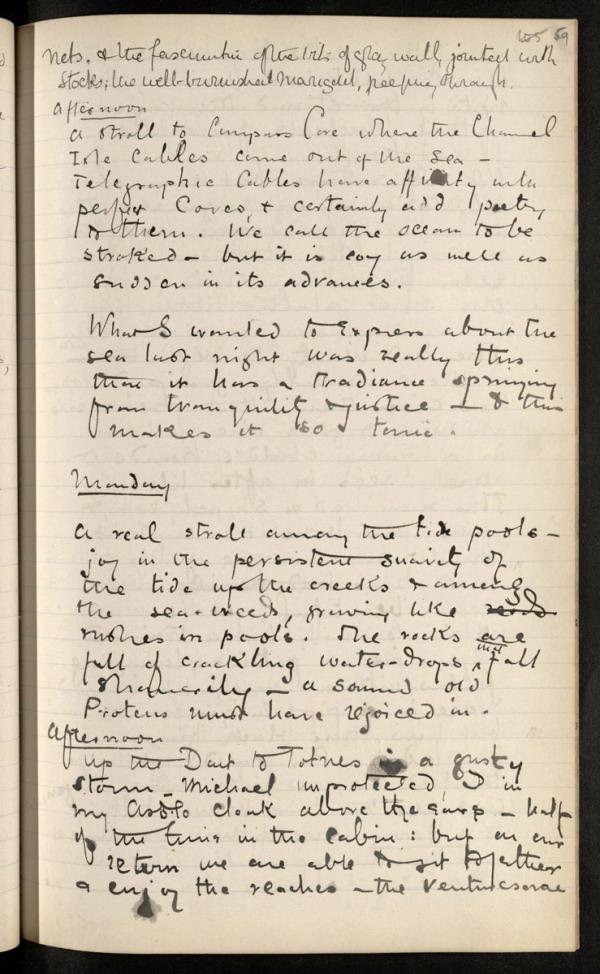 59
nets. & the fascination of the bits of gray wall, jointed with
stocks; the well-burnished marigold, peeping through.
Afternoon
A stroll to Compass Cove where the Channel
Isle Cables come out of the sea –
Telegraphic Cables have affinity with
perfect Coves, & certainly add poetry
to them. We call the ocean to be
stroked – but it is coy as well as
sudden in its advances.
What I wanted to Express about the
sea last night was really this
that it has a radiance springing
from tranquility & justice – & this
makes it so tonic.
Monday
A real stroll among the tide pools –
joy in the persistent suavity of
the tide up the creeks & among
the sea-weeds, growing like reeds
rushes in pools. The rocks are
full of crackling water-drops, that fall
– a sound old
Proteus must have rejoiced in.
Afternoon
Up the Dart to Totnes in a gusty
storm – Michael unprotected, I in
my cloak above the – half
of the time in the cabin: but on our
return we are able to sit together
& enjoy the reaches – the venturesome